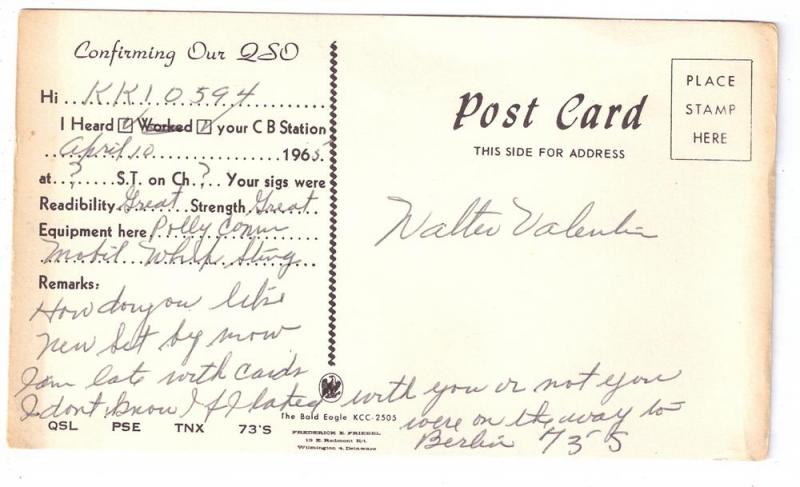 Confirming Our QSO
Hi KK10594
I Heard ☑ Worked ☑ your C B Station
April 10 1965
at ? S.T. on Ch ? Your sigs were
Readibility Great Strength Great
Equipment here Polly Comm
Mobil Whip Sting
Remarks:
How do you like
new set by now
I am late with cards
I dont know if I talked with you or not you
were on the way to
Berlin 73'S
The Bald Eagle KCC-2505
QSL PSE TNX 73'S
FREDERICK E. FRIEBEL
13 E. Redmont Rd.
Wilmington 4, Delaware
Post Card
THIS SIDE FOR ADDRESS
PLACE
STAMP
HERE
Walter Valentin